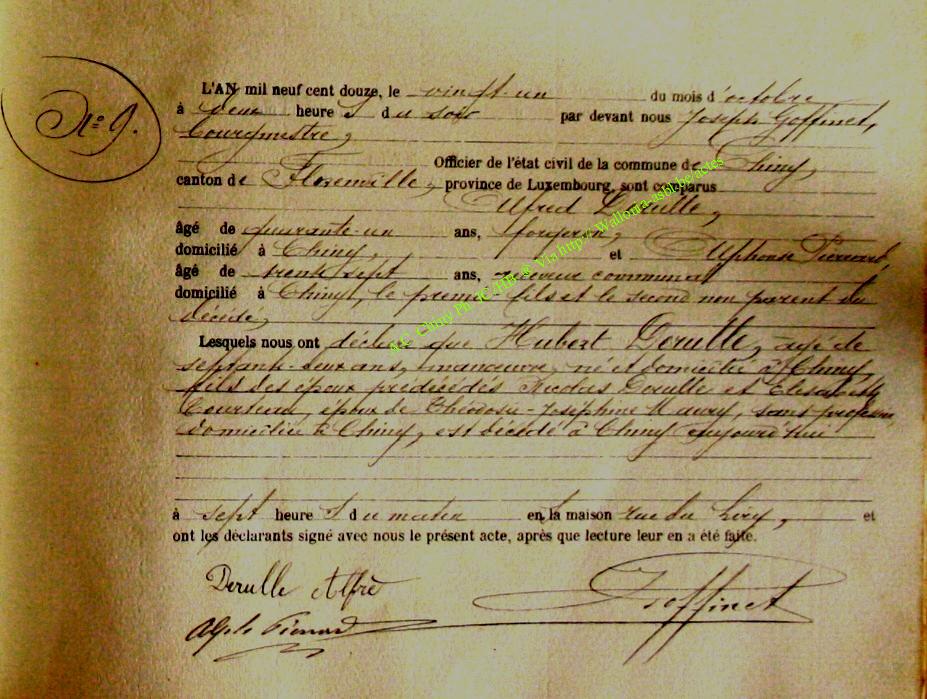 N° 9.
L'AN mil neuf cent douze, le vingt-un du mois d'octobre
à deux heure s du soir par devant nous Joseph Goffinet,
bourgmestre,
Officier de l'état civil de la commune de Chiny,
canton de Florenville, province de Luxembourg, sont comparus
Alfred Derulle,
âgé de quarante-un ans, forgeron,
domicilié à Chiny, et Alphonse Pierrard,
âgé de trente sept ans, receveur communal
domicilié à Chiny, le premier fils et le second non parent du
décédé,
Lesquels nous ont déclaré que Hubert Derulle, âgé de
septante-deux ans, manœuvre, né et domicilié à Chiny,
fils des époux prédécédés Nicolas Derulle et Elisabeth
époux de Théodosie-Joséphine Maury, sans profession,
domiciliée à Chiny, est décédé à Chiny aujourd'hui
à sept heure s du matin en la maison rue du et
ont les déclarants signé avec nous le présent acte, après que lecture leur en a été faite.
Derulle Alfré
JGoffinet
Alph Pierrard
A.E. Chiny Via http://Wallonia-asbl.be/actes